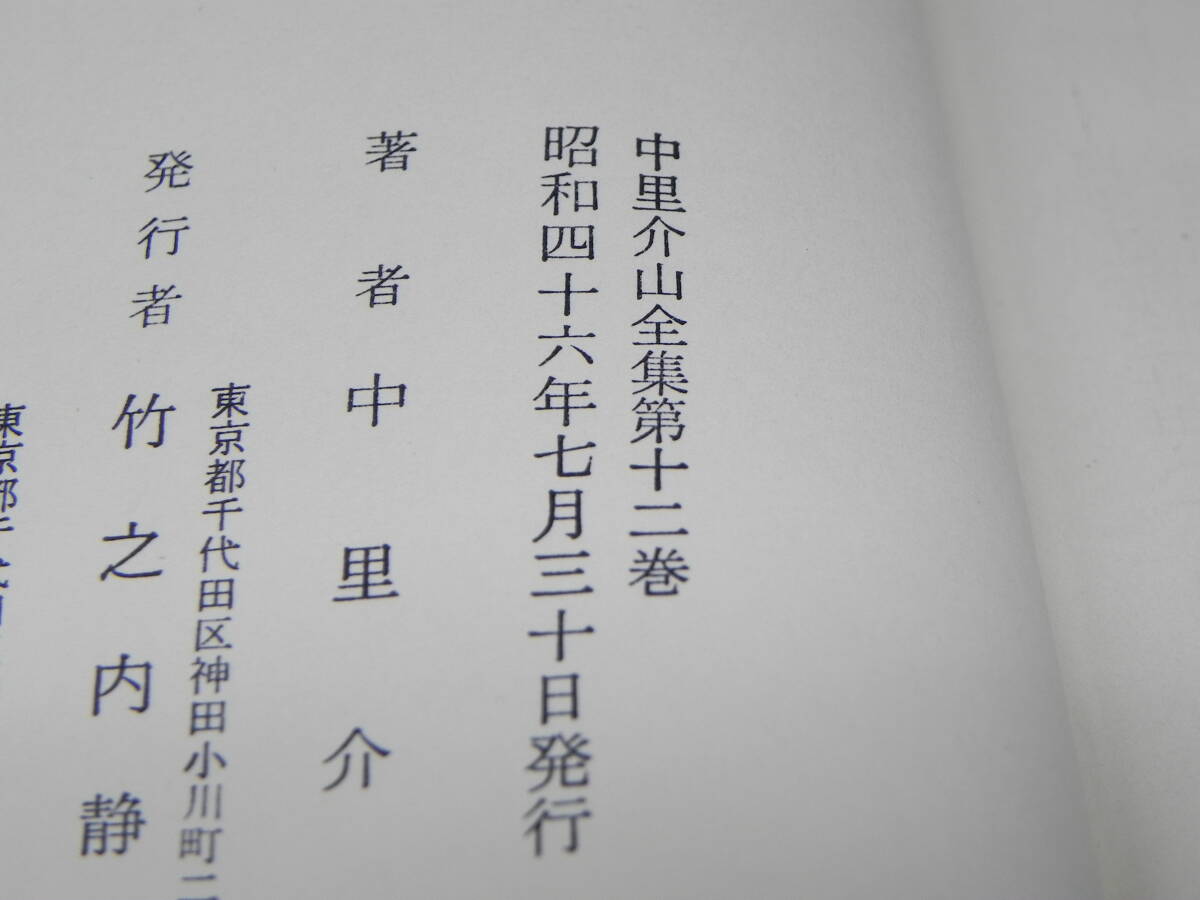 中里介山全集第十二巻
昭和四十六年七月三十日発行
著者中里介
東京都千代田区神田小川町二
発行者竹之内静
東京都千代田